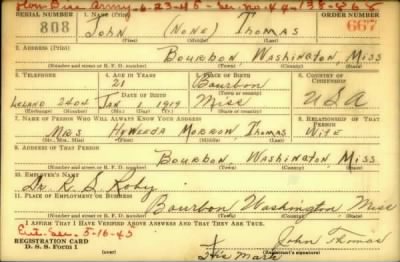 Hon Dis. Army-6-23-45-Ser. no. 44-138-868
SERIAL NUMBER 1. NAME (Print) ORDER NUMBER
808 John (None) Thomas 667
(First) (Middle) (Last)
2. ADDRESS (Print)
Bourbon, Washington, Miss
(Number and street or R. F. D. number) (Town) (County) (State)
3. TELEPHONE 4. AGE IN YEARS 5. PLACE OF BIRTH 6. COUNTRY OF CITIZENSHIP
21 Bourbon
DATE OF BIRTH
Leland 2404 Jan 6 1919 Miss USA
(Exchange) (Number) (Mo.) (Day) (Yr.) (State or country)
7. NAME OF PERSON WHO WILL ALWAYS KNOW YOUR ADDRESS 8. RELATIONSHIP OF THAT PERSON
Mrs Morrow Thomas Wife
(Mr., Mrs., Miss) (First) (Middle) (Last)
9. ADDRESS OF THAT PERSON
Bourbon, Washington, Miss
(Number and street or R. F. D. number) (Town) (County) (State)
10. EMPLOYER'S NAME
Dr. K. S.
11. PLACE OF EMPLOYMENT OR BUSINESS
Bourbon Washington Miss
(Number and street or R. F. D. number) (Town) (County) (State)
I AFFIRM THAT I HAVE VERIFIED ABOVE ANSWERS AND THAT THEY ARE TRUE.
5-16-45
REGISTRATION CARD
D. S. S. Form 1
John Thomas
(Registrant's signature)
His Mark